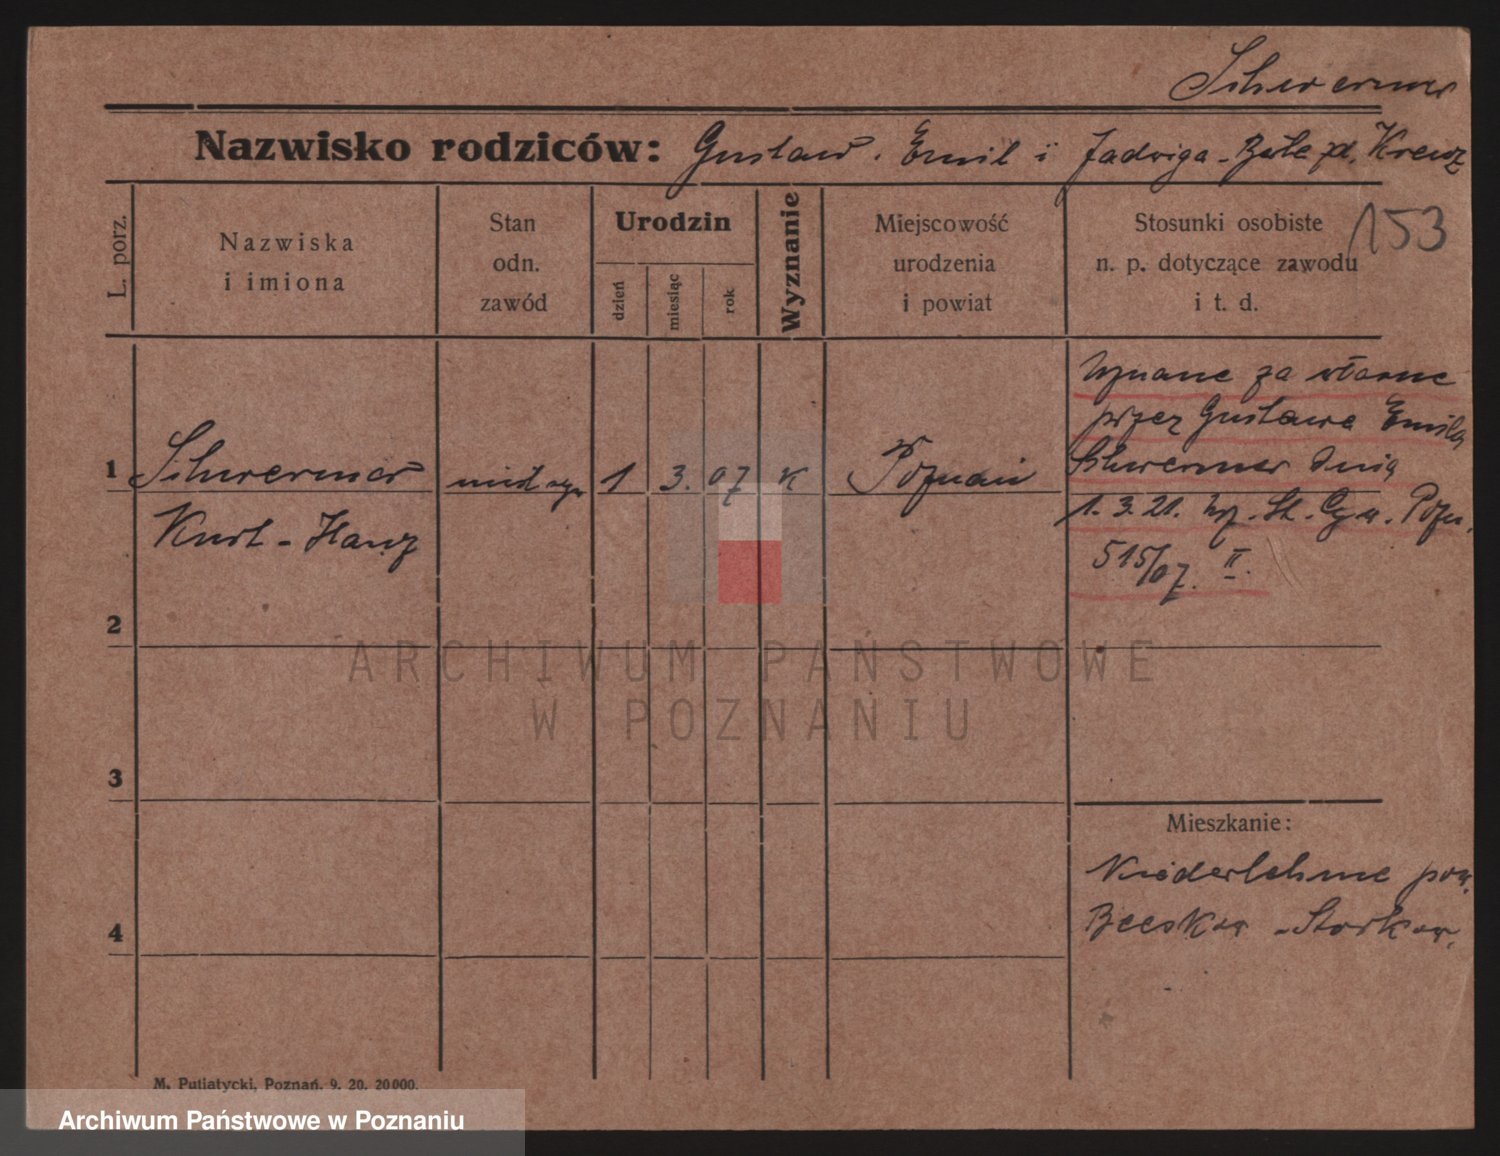 Schwermer
Nazwisko rodziców: Gustaw. Emil i Jadwiga - zd. Kreuz
L. porz.
Nazwiska
i imiona
Stan
odn.
zawód
Urodzin
dzień
miesiąc
rok
Wyznanie
Miejscowość
urodzenia
i powiat
Stosunki osobiste
n. p. dotyczące zawodu
i t. d.
153
1 Schwermer 1 3. 07 K Poznań
Kurt - Hanz
Uznane za własne
przez Gustawa Emila
Schwermer dnia
1. 3. 21. St. Pozn.
515/07. II.
2
3
4
Mieszkanie:
Niederlehme pow.
Beeskow - Storkow.
ARCHIWUM PAŃSTWOWE
W POZNANIU
M. Putiatycki, Poznań. 9. 20. 20000.
Archiwum Państwowe w Poznaniu